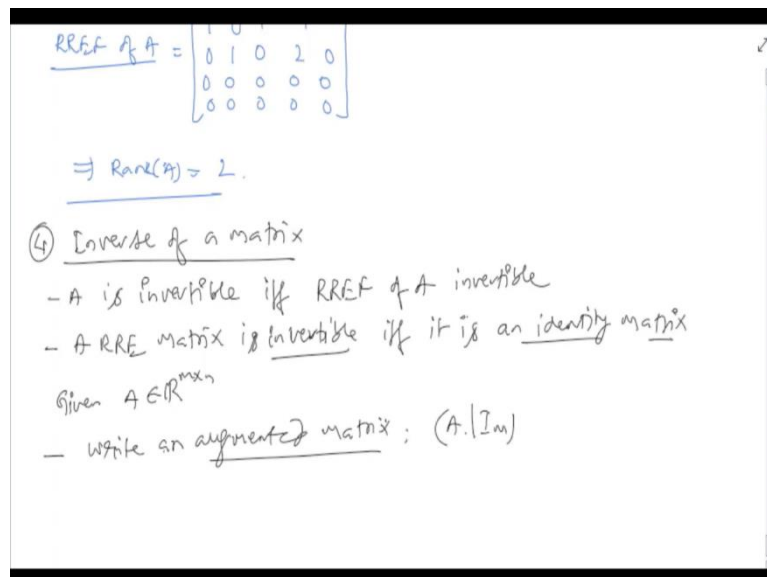 RREF of A =
0 1 0 2 0
0 0 0 0 0
0 0 0 0 0
⇒ Rank(A) = 2.
④ Inverse of a matrix
- A is invertible iff RREF of A invertible
- A RRE matrix is invertible iff it is an identity matrix
Given A ∈ ℝ^{m×n}
- write an augmented matrix : (A | Im)